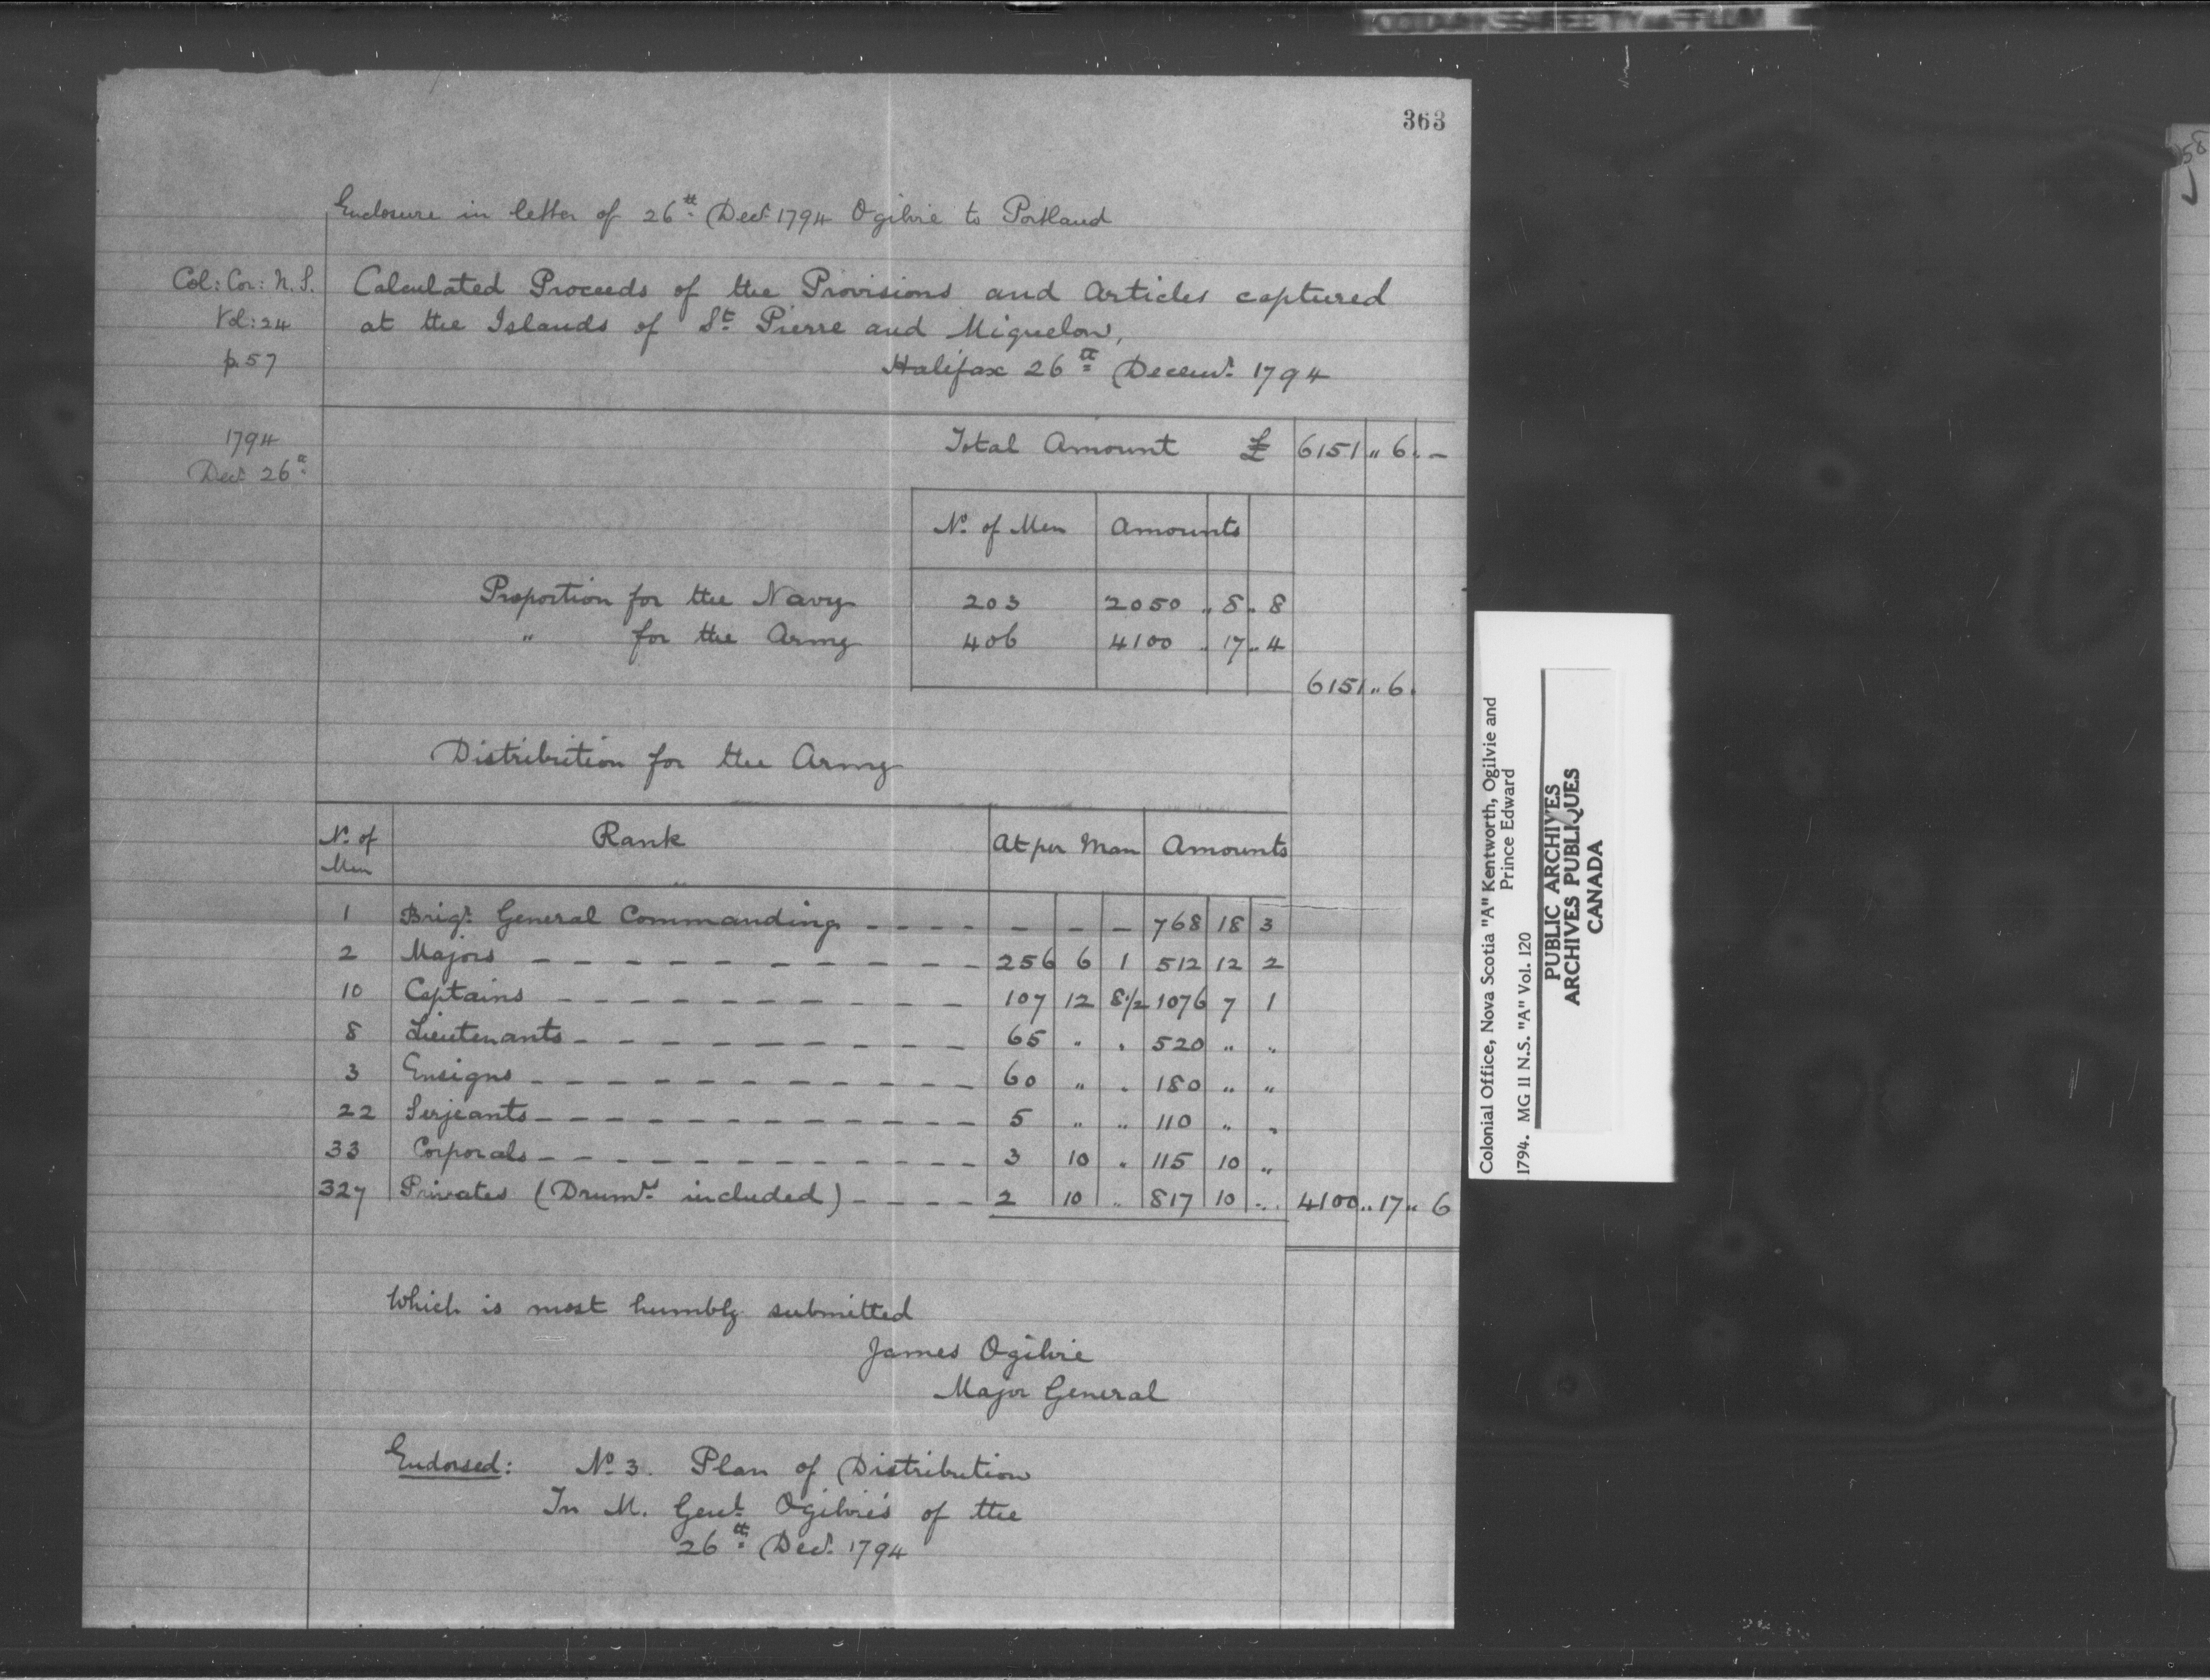 363
Enclosure in letter of 26th Decr 1794 Ogilvie to Portland
Col: Cor: N. S.
Vol: 24
p. 57
Calculated Proceeds of the Provisions and Articles captured
at the Islands of St Pierre and Miquelon,
Halifax 26th Decemr 1794
1794
Decr 26th
Total Amount £ 6151 „ 6 . –
No. of Men Amounts
Proportion for the Navy 203 2050 „ 8 „ 8
„ for the Army 406 4100 „ 17 „ 4
6151 „ 6 .
Distribution for the Army
No. of Men Rank At per Man Amounts
1 Brigr General Commanding - - - - – – – 768 18 3
2 Majors - - - - - - - - - - 256 6 1 512 12 2
10 Captains - - - - - - - - - - 107 12 8 1/2 1076 7 1
8 Lieutenants - - - - - - - - - 65 „ „ 520 „ „
3 Ensigns - - - - - - - - - - 60 „ „ 180 „ „
22 Serjeants - - - - - - - - - - 5 „ „ 110 „ „
33 Corporals - - - - - - - - - - 3 10 „ 115 10 „
327 Privates (Drumrs included) - - - - 2 10 „ 817 10 „ 4100 „ 17 „ 6
Which is most humbly submitted
James Ogilvie
Major General
Endorsed: No. 3. Plan of Distribution
In M. Genl Ogilvie's of the
26th Decr 1794
Colonial Office, Nova Scotia "A" Kentworth, Ogilvie and
Prince Edward
1794. MG 11 N.S. "A" Vol. 120
PUBLIC ARCHIVES
ARCHIVES PUBLIQUES
CANADA